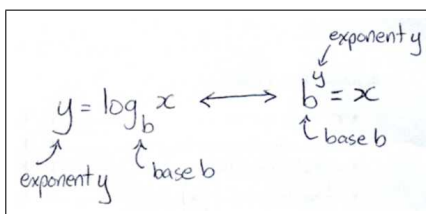 exponent y
y = log_b x ⟷ b^y = x
base b
exponent y
base b